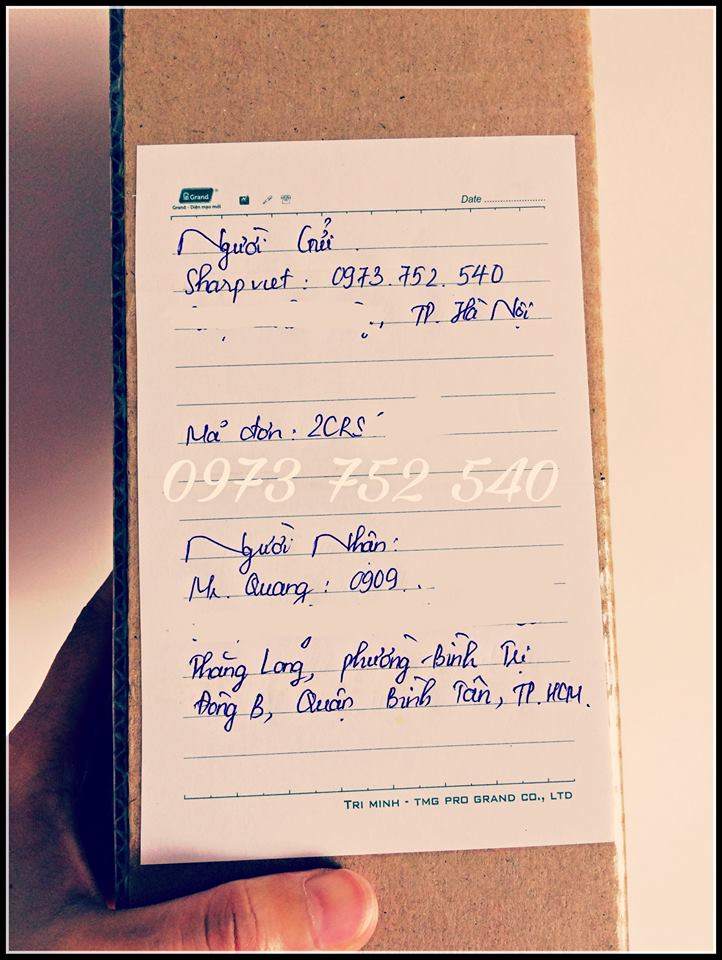 Grand
Grand - Diện mạo mới
Date ....................
Người Gửi.
Sharpviet: 0973.752.540
, TP. Hà Nội
Mã đơn: 2CRS
0973 752 540
Người Nhận:
Mr. Quang: 0909.
Thăng Long, phường Bình Trị
Đông B, Quận Bình Tân, TP. HCM.
TRI MINH - TMG PRO GRAND CO., LTD